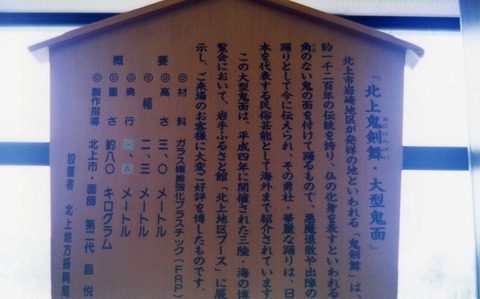 『北上鬼剣舞・大型鬼面』
おにけんばい
北上市岩崎地区が発祥の地といわれる「鬼剣舞」は、
約一千二百年の伝統を誇り、仏の化身を表すといわれる
角のない鬼の面を付けて踊るもので、悪魔退散や出陣の
踊りとして今に伝えられ、その勇壮・華麗な踊りは、日
本を代表する民俗芸能として海外まで紹介されています
この大型鬼面は、平成四年に開催された三陸・海の博
覧会において、岩手ふるさと館「北上地区ブース」に展
示し、ご来場のお客様に大変ご好評を博したものです。
概要
◎材料 ガラス繊維強化プラスチック(FRP)
◎高さ 三、〇メートル
◎幅 二、三メートル
◎奥行 一、八メートル
◎重さ 約八〇キログラム
◎製作指導 北上市・面師 第二代
設置者 北上地方振興局